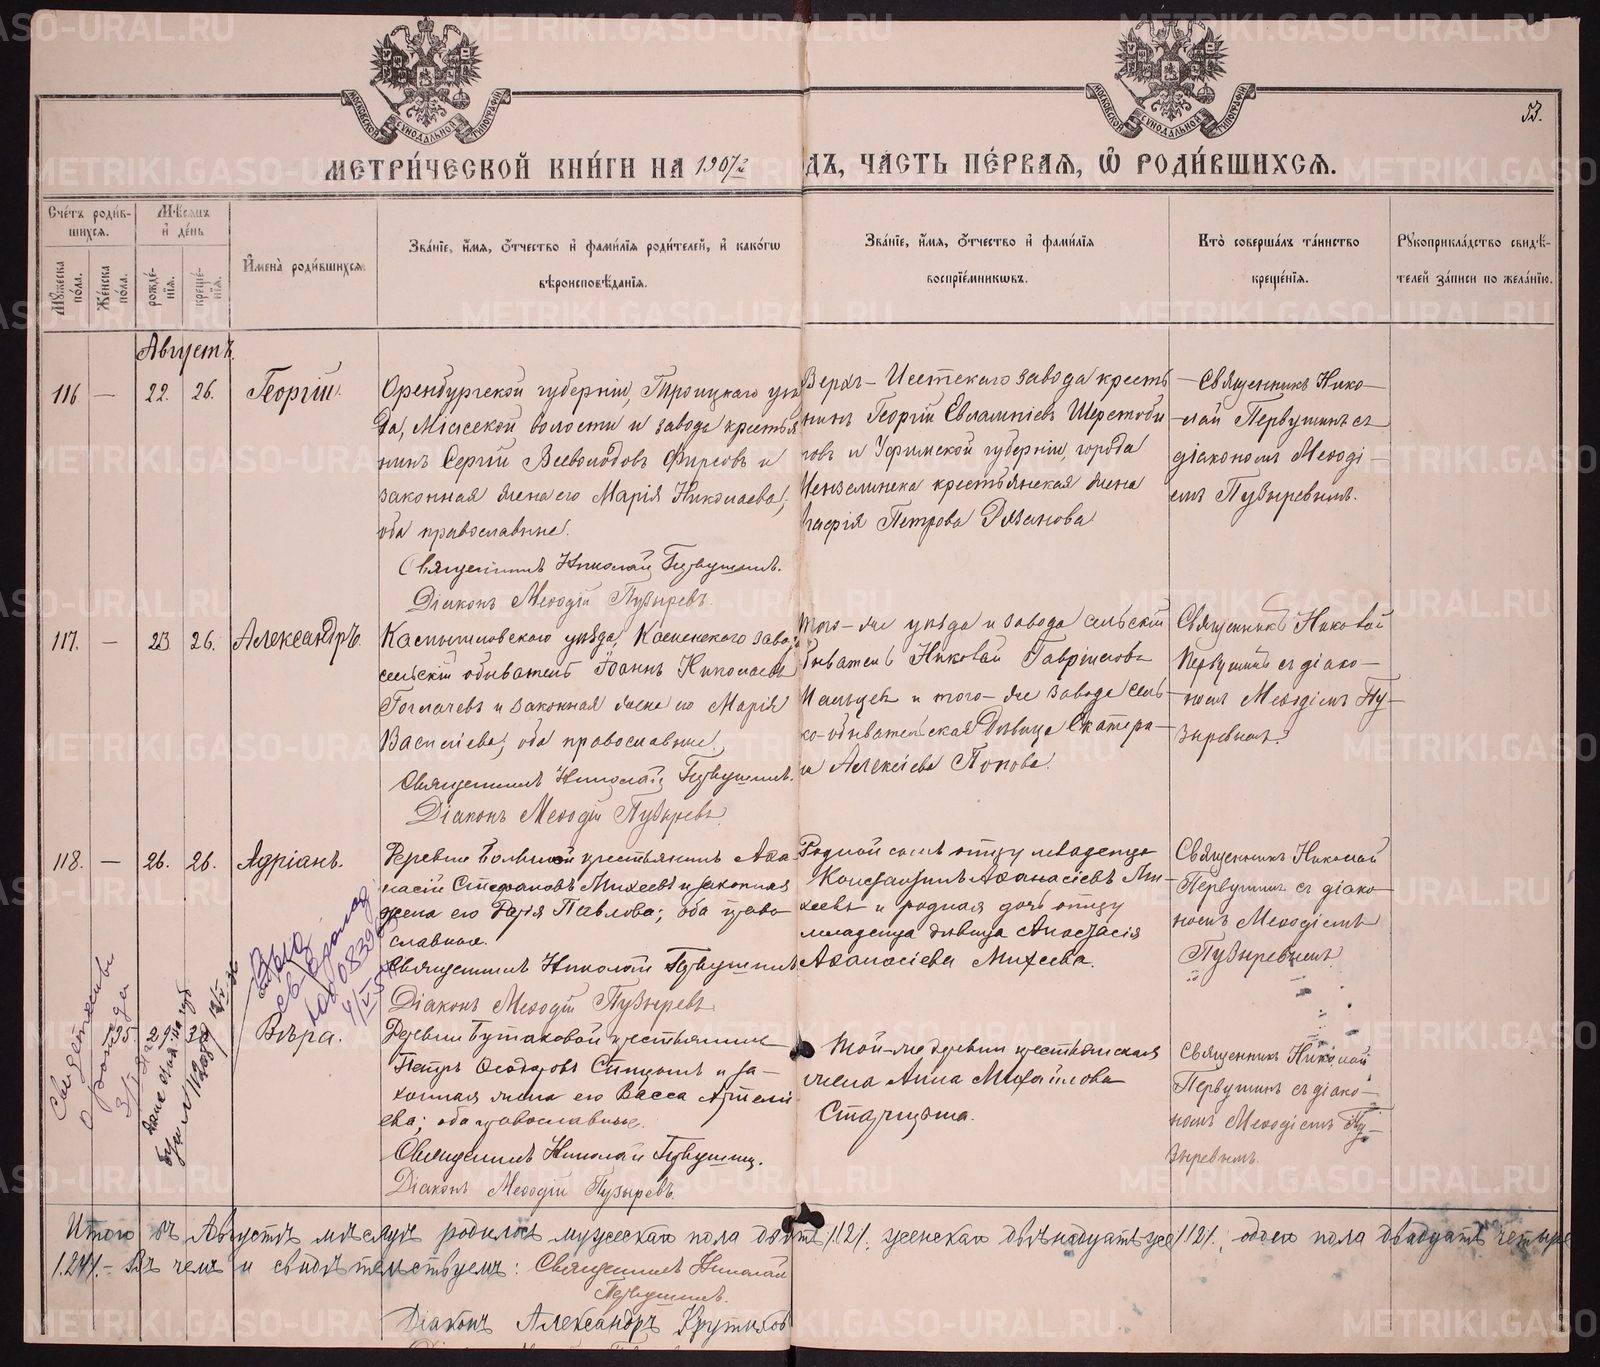 53.
МЕТРИ́ЧЕСКОЙ КНИ́ГИ НА 1907/й
ДЪ, ЧАСТЬ ПЕ́РВАЯ, Ѿ РОДИ́ВШИХСЯ.
Сче́тъ роди́в-
шихся.
Му́жеска по́ла.
Же́нска по́ла.
Мѣ́сяцъ и де́нь
рожде́-нїя.
креще́-нїя.
И҆мена̀ роди́вшихся.
Зва́нїе, и҆́мя, ѻ҆́тчество и҆ фами́лїя роди́телей, и҆ како́гѡ
вѣроисповѣ́данїя.
Зва́нїе, и҆́мя, ѻ҆́тчество и҆ фами́лїя
воспрїе́мникѡвъ.
Кто̀ соверша́лъ та́инство
креще́нїя.
Рꙋкоприкла́дство свидѣ́-
телей за́писи по жела́нїю.
Августъ.
116 — 22. 26. Георгій.
Оренбургской губерніи, Троицкаго уѣз
да, Міасской волости и завода крестья
нинъ Сергій Всеволодовъ Фирсовъ и
законная жена его Марія Николаева;
оба православные.
Священникъ Николай Первушинъ.
Діаконъ Меѳодій Пузыревъ.
Верхъ-Исетскаго завода кресть
нинъ Георгій Евлампіевъ Шерстоби
товъ и Уфимской губерніи, города
Мензелинска крестьянская жена
Петрова
Священникъ Нико-
лай Первушинъ съ
діакономъ Меѳоді-
емъ Пузыревымъ.
117. — 23 26. Александръ.
Камышловскаго уѣзда, Каменскаго заво
сельскій обыватель Іоаннъ Николаевъ
и законная жена его Марія
Васильева; оба православные.
Священникъ Николай Первушинъ.
Діаконъ Меѳодій Пузыревъ.
того-же уѣзда и завода сельскій
обыватель Николай Гавріиловъ
и того-же завода сель
ско-обывательская дѣвица Екатери-
на Алексіева Попова.
Священникъ Николай
Первушинъ съ діако-
номъ Меѳодіемъ Пу-
зыревымъ.
118. — 26. 26. Адріанъ.
Деревни Большой крестьянинъ Аѳа
насій Стефановъ Михеевъ и законная
жена его Дарія Павлова; оба право
славные.
Священникъ Николай Первушинъ
Діаконъ Меѳодій Пузыревъ
Родной сынъ отцу младенца
Константинъ Аѳанасіевъ Ми-
хеевъ и родная дочь отцу
младенца дѣвица Анастасія
Аѳанасіева Михеева.
Священникъ Николай
Первушинъ съ діако-
номъ Меѳодіемъ
Пузыревымъ
Свидетельство
о рожден
Вѣра.
Деревни Бутаковой крестьянинъ
Петръ Ѳеодоровъ и за-
конная жена его Васса
ева; оба православные.
Священникъ Николай Первушинъ.
Діаконъ Меѳодій Пузыревъ.
Той-же деревни крестьянская
жена Анна Михайлова
Старицына.
Священникъ Николай
Первушинъ съ діако-
номъ Меѳодіемъ Пу-
зыревымъ.
Итого въ Августѣ мѣсяцѣ родилось мужескаго пола /12/. женскаго двѣнадцать /12/., обоего пола двадцать четыре
/24/.- Въ чемъ и свидѣтельствуемъ: Священникъ Николай
Первушинъ.
Діаконъ Александръ Крутиковъ